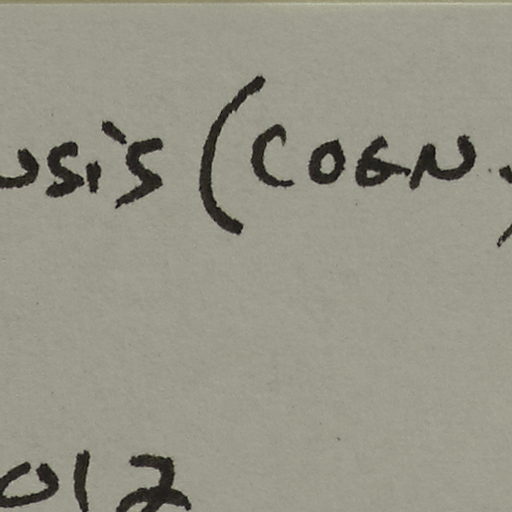 usis (COGN.
012